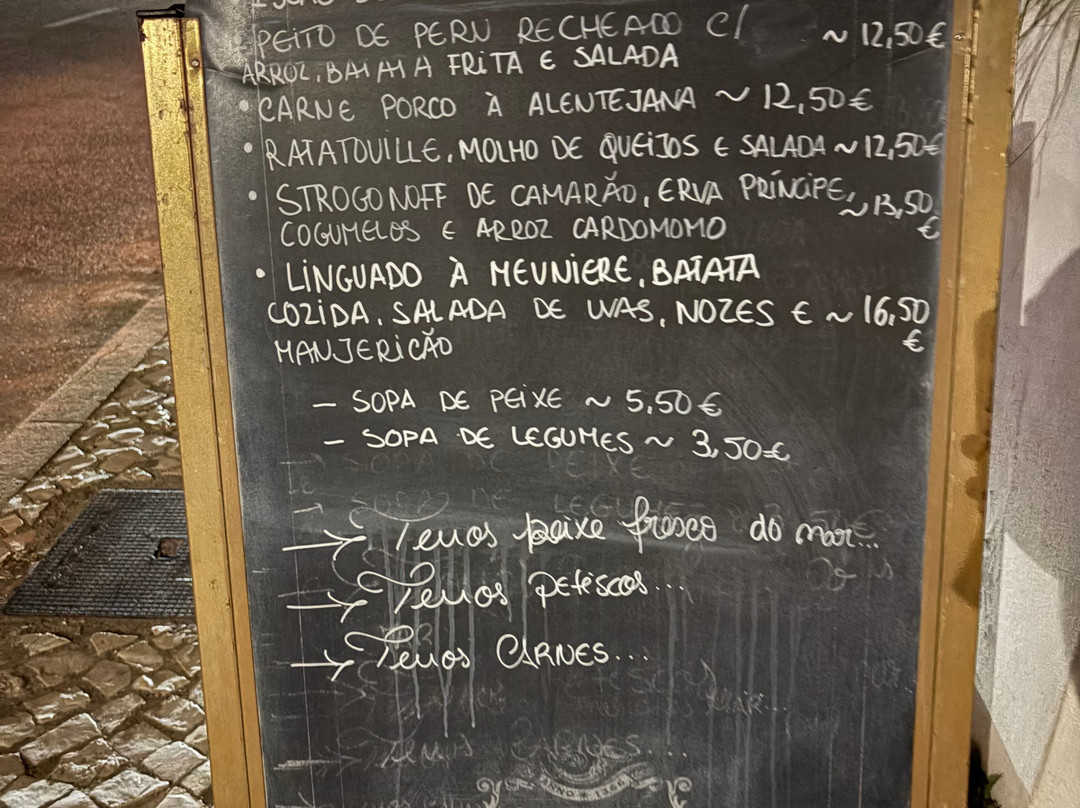 PEITO DE PERU RECHEADO C/ ~ 12,50€
ARROZ, BATATA FRITA E SALADA
• CARNE PORCO À ALENTEJANA ~ 12,50€
• RATATOUILLE, MOLHO DE QUEIJOS E SALADA ~ 12,50€
• STROGONOFF DE CAMARÃO, ERVA PRÍNCIPE, ~ 13,50
COGUMELOS E ARROZ CARDOMOMO €
• LINGUADO À MEUNIERE, BATATA
COZIDA, SALADA DE UVAS, NOZES E ~ 16,50
MANJERICÃO €
– SOPA DE PEIXE ~ 5,50€
– SOPA DE LEGUMES ~ 3,50€
→ Temos peixe fresco do mar...
→ Temos petiscos...
→ Temos CARNES...
ANNO